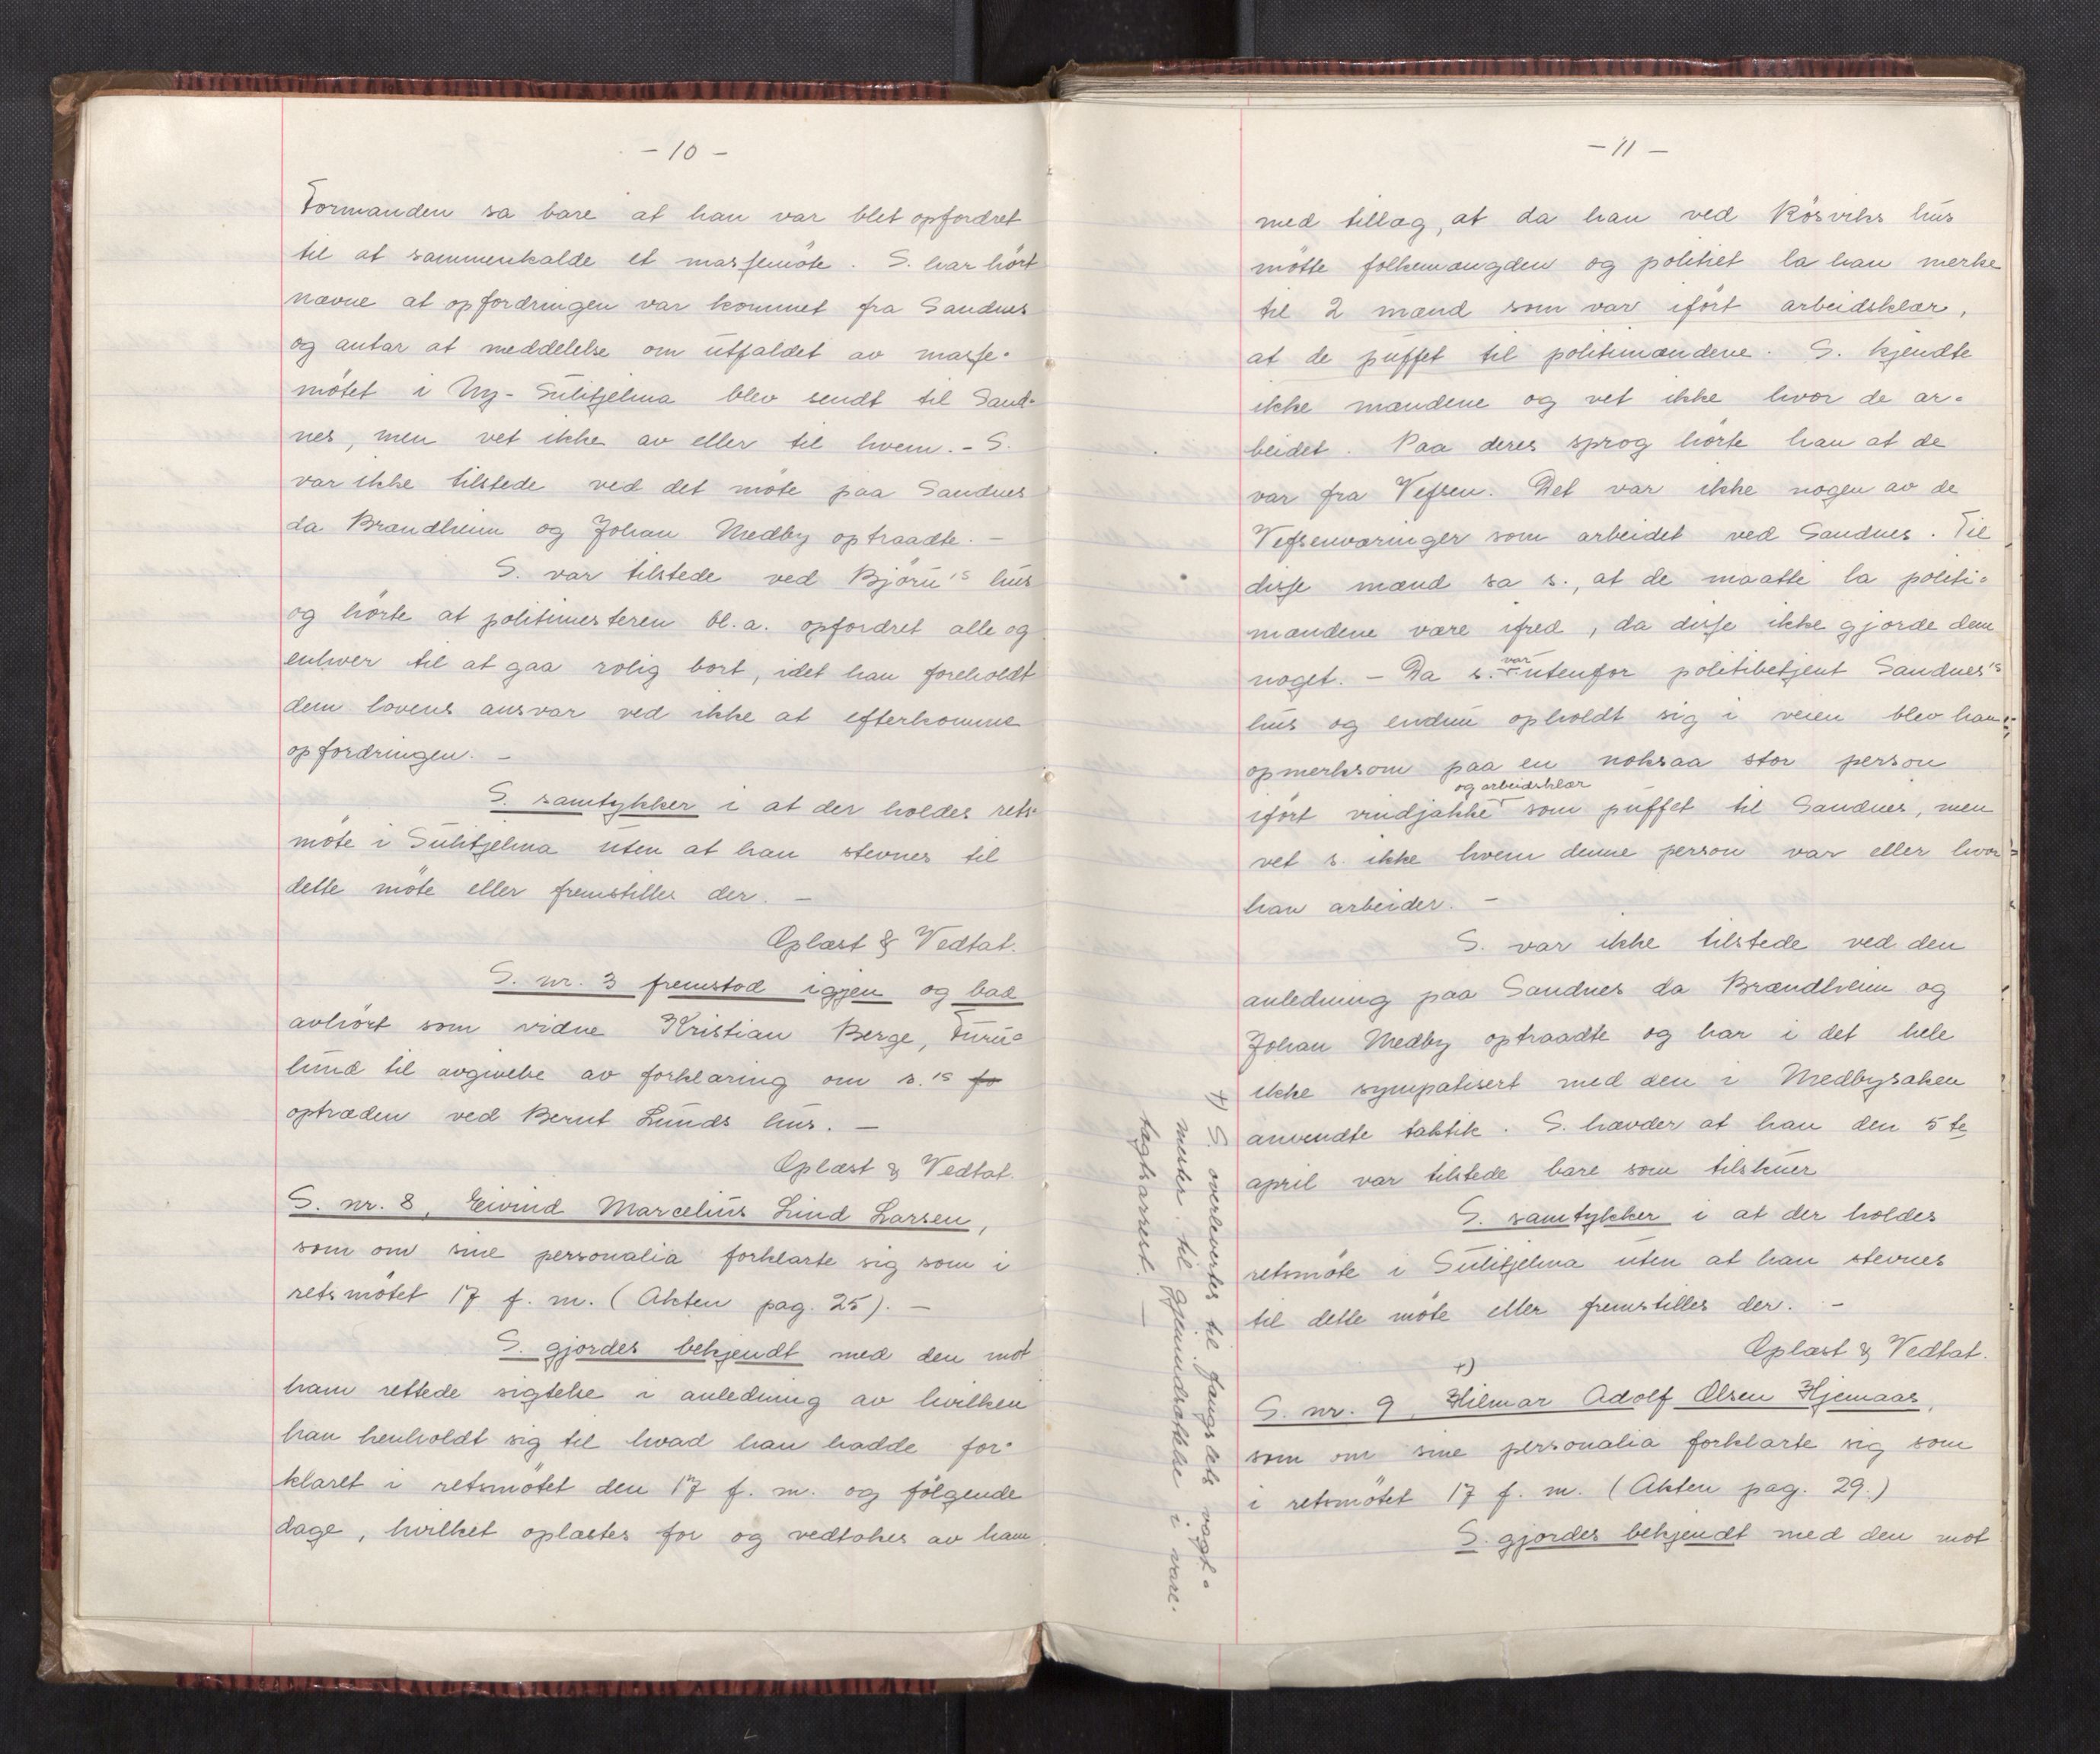 - 10 -
Formanden sa bare at han var blet opfordret
til at sammenkalde et massemöte. S. har hört
nævne at opfordringen var kommet fra Sandnes
og antar at meddelelse om utfaldet av masse-
mötet i Ny-Sulitjelma blev sendt til Sand-
nes, men vet ikke av eller til hvem. - S.
var ikke tilstede ved det möte paa Sandnes
da Brandheim og Johan Medby optraadte. -
S. var tilstede ved Björn's hus
og hörte at politimesteren bl.a. opfordret alle og
enhver til at gaa rolig bort, idet han foreholdt
dem lovens ansvar ved ikke at efterkomme
opfordringen. -
S. samtykker i at der holdes rets-
möte i Sulitjelma uten at han stevnes til
dette möte eller fremstilles der. -
Oplæst & Vedtat.
S. nr. 3 fremstod igjen og bad
avhört som vidne Kristian Berge, Furu-
lund til avgivelse av forklaring om s.'s fo
optræden ved Bernt Lunds hus. -
Oplæst & Vedtat.
S. nr. 8, Eivind Marcelius Lind Larsen,
som om sine personalia forklarte sig som i
retsmötet 17 f. m. (Akten pag. 25). -
S. gjordes bekjendt med den mot
ham rettede sigtelse i anledning av hvilken
han henholdt sig til hvad han hadde for-
klaret i retsmötet den 17 f. m. og fölgende
dage, hvilket oplæstes for og vedtokes av ham
- 11 -
med tillæg, at da han ved Rösviks hus
mötte folkemængden og politiet la han merke
til 2 mænd som var ifört arbeidsklær,
at de puffet til politimændene. S. kjendte
ikke mændene og vet ikke hvor de ar-
beidet. Paa deres sprog hörte han at de
var fra Vefsen. Det var ikke nogen av de
Vefsenværinger som arbeidet ved Sandnes. Til
disse mænd sa s., at de maatte la politi-
mændene være ifred, da disse ikke gjorde dem
noget. - Da s. var utenfor politibetjent Sandnes's
hus og endnu opholdt sig i veien blev han
opmerksom paa en noksaa stor person
ifört vindjakke og arbeidsklær som puffet til Sandnes, men
vet s. ikke hvem denne person var eller hvor
han arbeider. -
S. var ikke tilstede ved den
anledning paa Sandnes da Brændheim og
Johan Medby optraadte og har i det hele
ikke sympatisert med den i Medbysaken
anvendte taktik. S. hævder at han den 5te
april var tilstede bare som tilskuer
S. samtykker i at der holdes
retsmöte i Sulitjelma uten at han stevnes
til dette möte eller fremstilles der. -
Oplæst & Vedtat.
+)
S. nr. 9, Hilmar Adolf Olsen Hjemaas,
som om sine personalia forklarte sig som
i retsmötet 17 f. m. (Akten pag. 29.)
S. gjordes bekjendt med den mot
+) S. overlevertes til fængslets vagt-
mester til gjenindsættelse i vare-
tægtsarrest. -